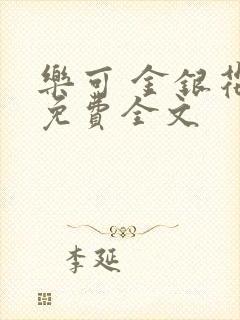 樂可 金銀花
免費全文
李延